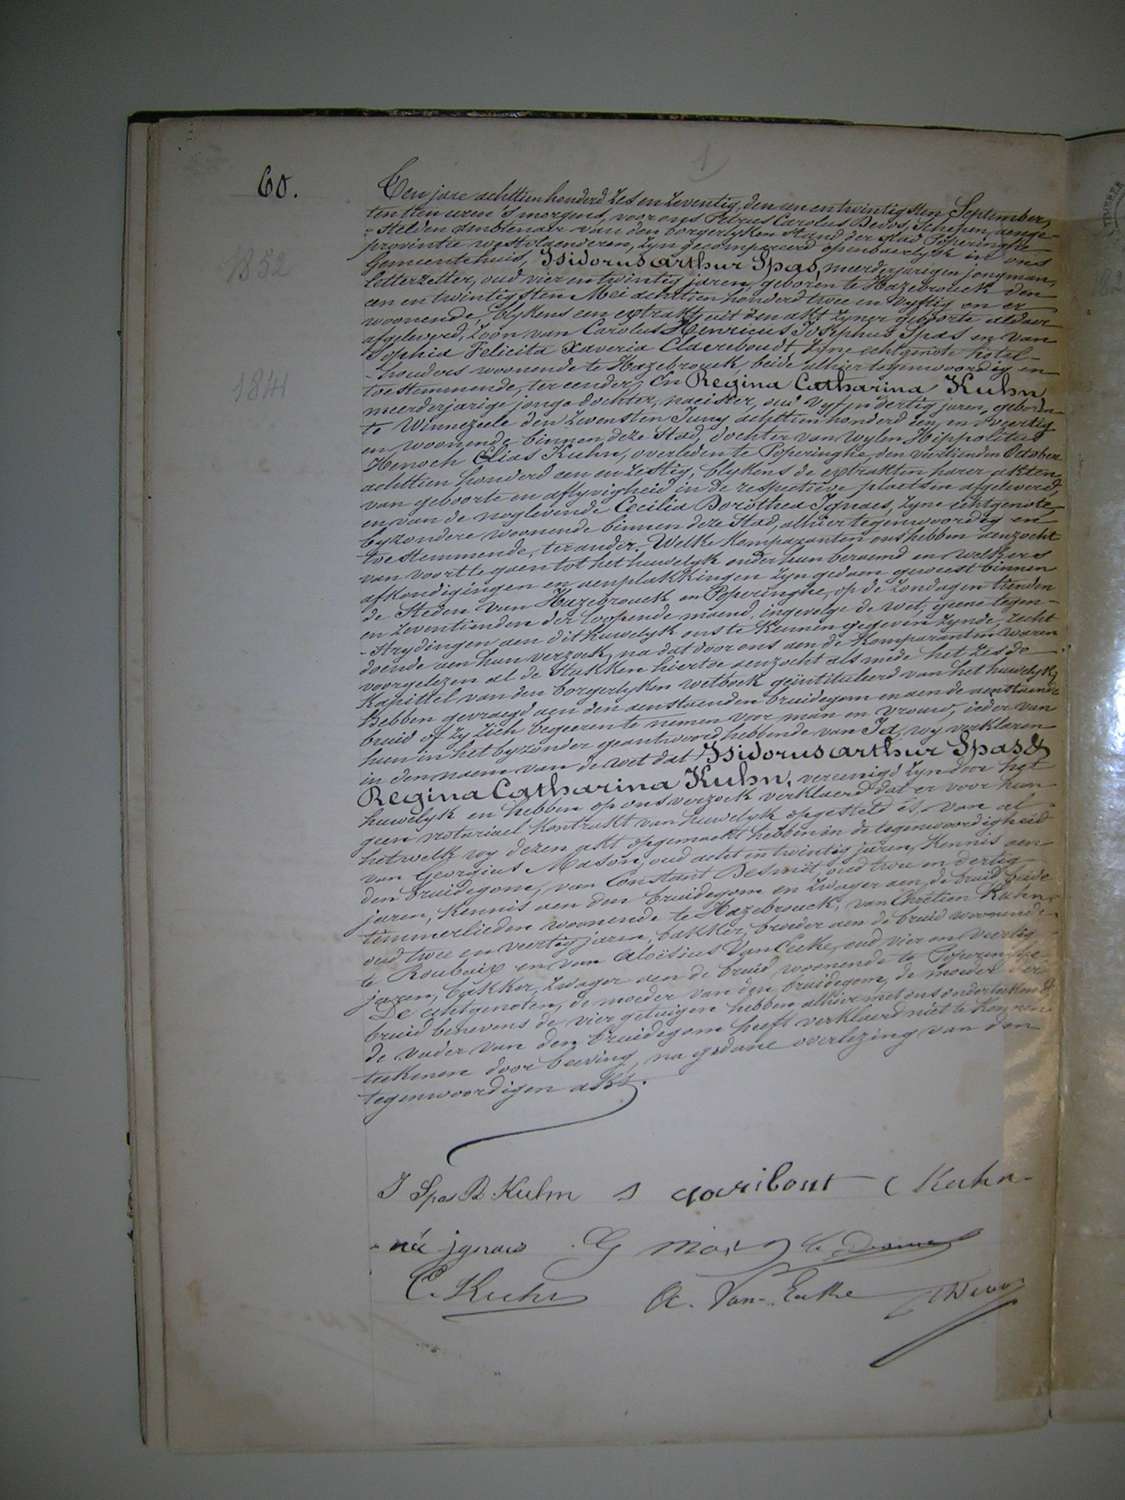 60.
1852
1841
Ten jare achttien honderd zes en zeventig, den een en twintigsten September,
ten tien uren 's morgens, voor ons Petrus Carolus Devos, Schepen, aenge-
-stelden Ambtenaer van den borgerlyken stand der stad Poperinghe
provintie westvlaenderen, zyn gecompareerd openbaerlyk in ons
Gemeentehuis, Isidorus arthur Spas, meerderjarigen jongman,
letterzetter, oud vier en twintig jaren, geboren te Hazebrouck den
een en twintigsten Mei achttien honderd twee en vyftig en er
woonende, blykens een extrakt uit den akt zyner geboorte aldaer
afgeleverd, zoon van Carolus Henricus Josephus Spas en van
Sophia Felicita Xaveria Claereboudt zyne echtgenote hotel-
-houders woonende te Hazebrouck, beide alhier tegenwoordig en
toestemmende, ter eender, En Regina Catharina Kuhn
meerderjarige jonge dochter, naeister, oud vyf en dertig jaren, geboren
te Winnezeele den zevensten Juny achttien honderd een en veertig
en woonende binnen deze Stad, dochter van wylen Hippolitus
Henoch Elias Kuhn, overleden te Poperinghe, den viertienden October
achttien honderd een en zestig, blykens de extrakten harer akten
van geboorte en aflyvigheid in de respective plaetsen afgeleverd,
en van de noglevende Cecilia Dorothea Ignaes, zyne echtgenote,
byzondere woonende binnen deze Stad, alhier tegenwoordig en
toestemmende, ter ander. Welke komparanten ons hebben aenzocht
van voort te gaen tot het huwelyk onder hun beraemd en welkers
afkondigingen en aenplakkingen zyn gedaen geweest binnen
de Steden van Hazebrouck en Poperinghe, op de zondagen tienden
en zeventienden der loopende maend, ingevolge de wet, geene tegen-
-strydingen aen dit huwelyk ons te kennen gegeven zynde, recht
doende aen hun verzoek, na dat door ons aen de komparanten waren
voorgelezen al de stukken hiertoe aenzocht als mede het zesde
kapittel van den borgerlyken wetboek geïntituleerd van het huwelyk,
Hebben gevraegd aen den aenstaenden bruidegom en aen de aenstaende
bruid of zy zich begeeren te nemen voor man en vrouw, ieder van
hun in het byzonder geantwoord hebbende van Ja, wy verklaren
in den naem van de wet dat Isidorus arthur Spas &
Regina Catharina Kuhn, vereenigd zyn door het
huwelyk en hebben op ons verzoek verklaerd dat er voor hun
geen notariael kontrakt van huwelyk opgesteld is van al
hetwelk wy dezen akt opgemaekt hebben in de tegenwoordigheid
van Georgius Mason, oud acht en twintig jaren, kennis aen
den bruidegom, van Constant Desmidt, oud twee en dertig
jaren, kennis aen den bruidegom en zwager aen de bruid beide
timmerlieden woonende te Hazebrouck, van Chretien Kuhn
oud twee en veertig jaren, bakker, broeder aen de bruid woonende
te Roubaix en van Aloïsius Van Eecke, oud vier en veertig
jaren, bakker, zwager aen de bruid woonende te Poperinghe
De echtgenoten, de moeder van den bruidegom, de moeder der
bruid benevens de vier getuigen hebben alhier met ons onderteekend
de vader van den bruidegom heeft verklaerd niet te kunnen
teekenen door beeving, na gedane overlezing van den
tegenwoordigen akt.
J Spas R Kuhn S Claribout C Kuhn
née Ignaes G Mason
C. Kuhn A. Van-Eecke PDevos